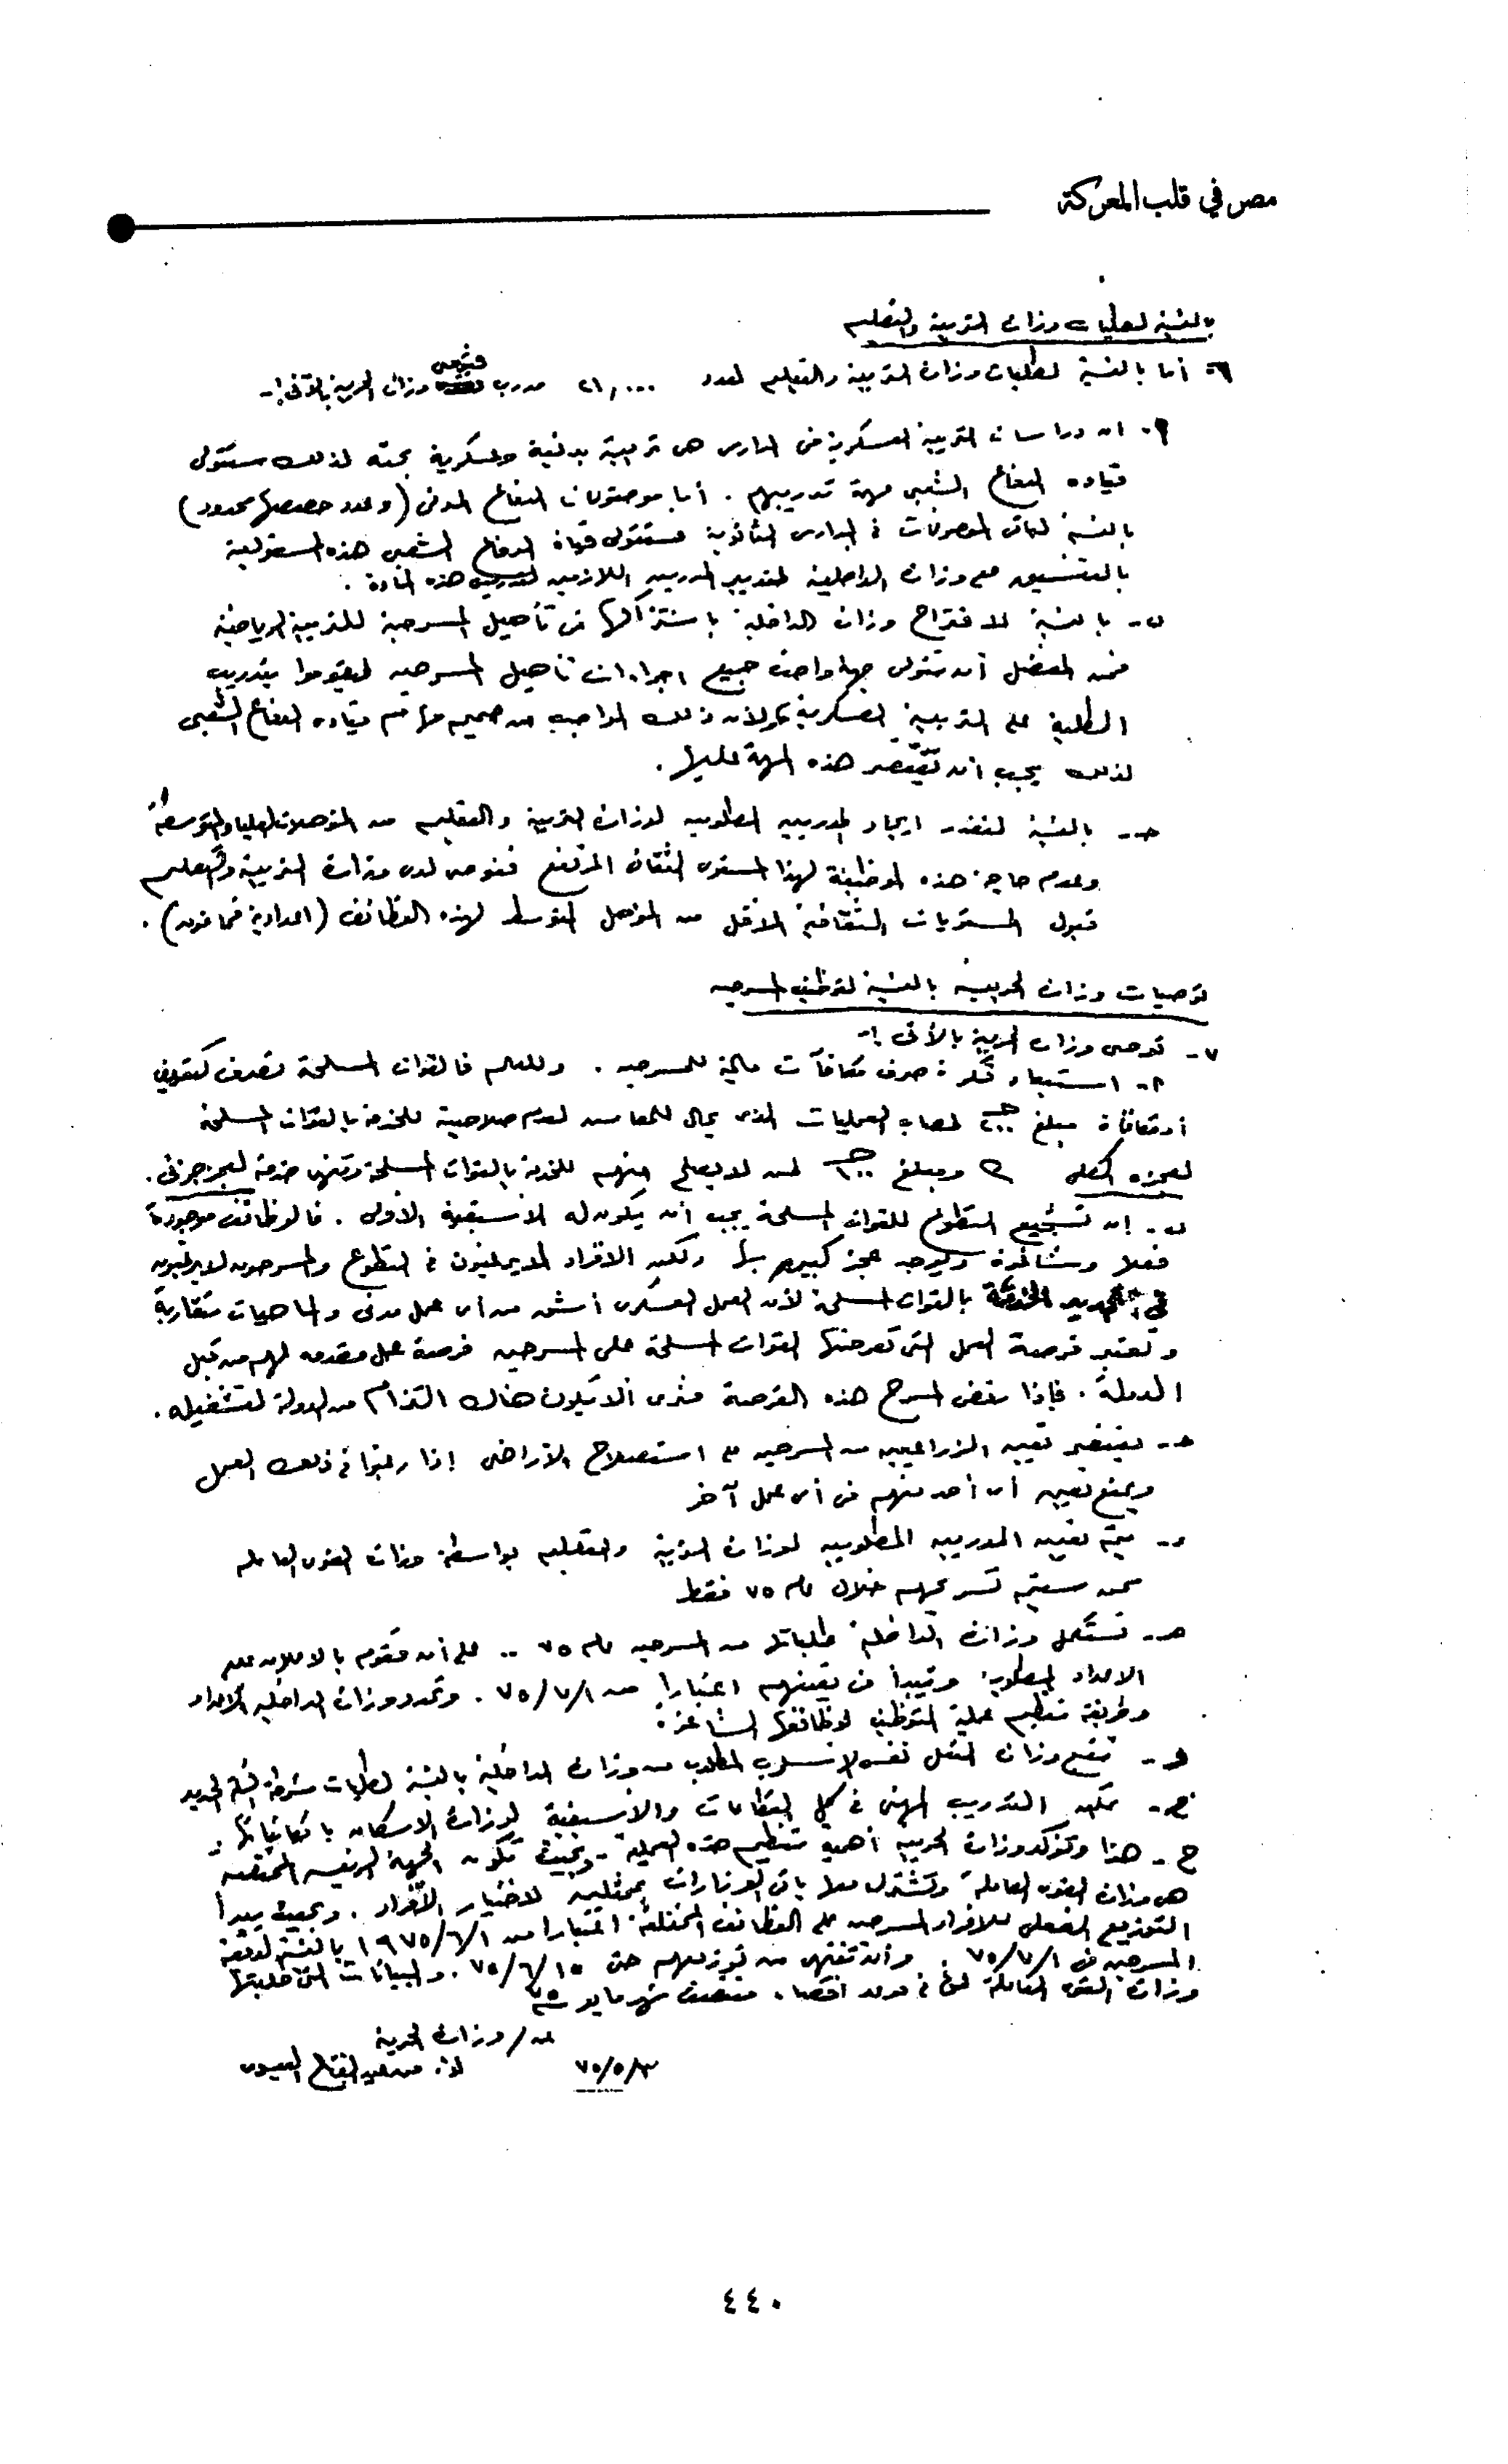 مصر في قلب المعركة
بالنسبة لطلبات وزارة التربية والتعليم
٦- أما بالنسبة لطلبات وزارة التربية والتعليم لعدد ٢١,٠٠٠ مدرب فتوصى وزارة الحربية بالآتى :-
٩- ان دراسات التربية العسكرية فى المدارس هى تربية بدنية وعسكرية بحته لذلك ستتولى
قيادة الدفاع الشعبى مهمة تدريبهم . أما موضوعات الدفاع المدنى (وعدد حصصها محدود)
بالنسبة لباقى الموضوعات فى المدارس الثانوية فستتولى قيادة الدفاع الشعبى هذه المسئولية
بالتنسيق مع وزارة الداخلية لتدبير المدربين اللازمين لتدريس هذه المادة .
ب- بالنسبة لاقتراح وزارة الداخلية باشتراكها فى تأهيل المسرحين للتربية الرياضية
فمن المفضل أن تتولى جهة واحدة جميع اجراءات تأهيل المسرحين ليقوموا بتدريب
الطلبة على التربية العسكرية ولأن ذلك الواجب من صميم مهام قيادة الدفاع الشعبى
لذلك يجب أن تقتصر هذه المهمة عليها .
حـ- بالنسبة لتعذر ايجاد المدربين المطلوبين لوزارة التربية والتعليم من المؤهلات العليا والمتوسطة
وعدم حاجة هذه الوظيفة لهذا المستوى الثقافى المرتفع فنوصى لدى وزارة التربية والتعليم
قبول المستويات الثقافية الأقل من المؤهل المتوسط لهذه الوظائف (اعدادية فما فوق) .
توصيات وزارة الحربية بالنسبة لتوظيف المسرحين
٧- توصى وزارة الحربية بالآتى :-
٩- استبعاد فكرة صرف مكافآت مالية للمسرحين . وللعلم فالقوات المسلحة تصرف كتعويض
أو مكافأة مبلغ لمصاب العمليات الذى يحال للمعاش لعدم صلاحية للخدمة بالقوات المسلحة
لعجزه الكلى ومبلغ لمن لا يصلح منهم للخدمة بالقوات المسلحة وتنهى خدمة لعجز جزئى .
ب- إن تشجيع التطوع للقوات المسلحة يجب أن يكون له الأسبقية الأولى . فالوظائف موجودة
فعلا وشاغرة ويوجد عجز كبير بها ولكن الأفراد لا يرغبون فى التطوع والمسرحون لا يرغبون
فى تجديد الخدمة بالقوات المسلحة لأن العمل العسكرى أشق من أى عمل مدنى والماهيات متقاربة
وتعتبر فرصة العمل التى تعرضها القوات المسلحة على المسرحين فرصة عمل مقدمه لهم من قبل
الدولة . فإذا رفض المسرح هذه الفرصة فنرى ألا يكون هناك التزام من الدولة لتشغيله .
حـ- يقتصر تعيين الزراعيين من المسرحين على استصلاح الأراضى إذا رغبوا فى ذلك العمل
ويمنع تعيين أى أحد منهم فى أى عمل آخر
د- يتم تعيين المدربين المطلوبين لوزارة التربية والتعليم بواسطة وزارة القوى العاملة
ممن سيتم تسريحهم خلال عام ٧٥ فقط
هـ- تستكمل وزارة الداخلية طلباتها من المسرحين عام ٧٥ .. على أن تقوم بالاعلان عن
الاعداد المطلوبة وتبدأ فى تعيينهم اعتبارا من ٧٥/٧/١ . وتحدد وزارة الداخلية الأعداد
وطريقة تنظيم عملية التوظيف لوظائفها الشاغرة .
و- تتبع وزارة النقل نفس الأسلوب المطلوب من وزارة الداخلية بالنسبة لطلبات شرطة السكة الحديد
التدريب المهنى فى كل القطاعات والأسبقية لوزارة الاسكان بامكانياتها .
ح- هذا وتؤكد وزارة الحربية أهمية تنظيم هذه العملية وبحيث تكون الجهة الرئيسية المختصة
هى وزارة القوى العاملة وتشترك معها باقى الوزارات بممثلين لاختيار الأفراد . وبحيث يبدأ
التوزيع الفعلى للأفراد المسرحين على الوظائف المختلفة اعتبارا من ١٩٧٥/٦/١ بالنسبة لدفعة
المسرحين فى ٧٥/٧/١ . وأن تنتهى من توزيعهم حتى ٧٥/٦/١٥ . والبيانات التى طلبتها
وزارة القوى العاملة فى موعد اقصاه منتصف شهر مايو ٧٥
عن / وزارة الحربية
٧٥/٥/٣
٤٤٠